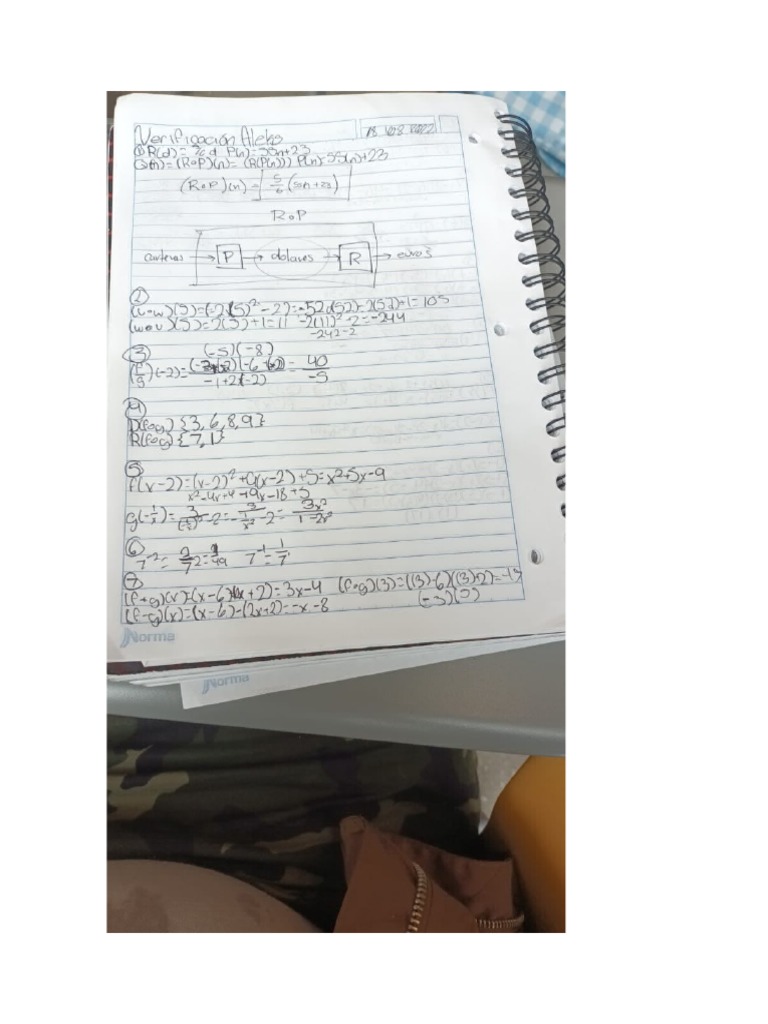 Verificación Aleks
① R(d) = 5/6 d P(n) = 55n+23
Q(n) = (R∘P)(n) = (R(P(n))) P(n) = 55(n)+23
(R∘P)(n) = 5/6 (5n+23)
R∘P
carteras → P → dolares → R → euros
②
(5) = (-2)(5)² - 2 = -52 - 2(52) + 1 = 105
(w∘u)(5) = 2(5)+1 = 11 -2(11)² - 2 = -244
-242-2
③ (-5)(-8)
(-2) = -1+2(-2) = 40/-5
④
D(f∘g) {3,6,8,9}
R(f∘g) {7,1}
⑤
f(x-2) = (x-2)² + 9(x-2) + 5 = x²+5x-9
x²-4x+4+9x-18+5
g(-1/x) = 3/(-1/x)² - 2 = 3/x² - 2 = 3x²/1-2x²
⑥
7⁻² = 7² = 1/49 7⁻¹ = 1/7
⑦
(f+g)(x) = (x-6)+(2x+2) = 3x-4 (f∘g)(3) = ((3)-6)((3)+2) =
(f-g)(x) = (x-6)-(2x+2) = -x-8
Norma
Norma